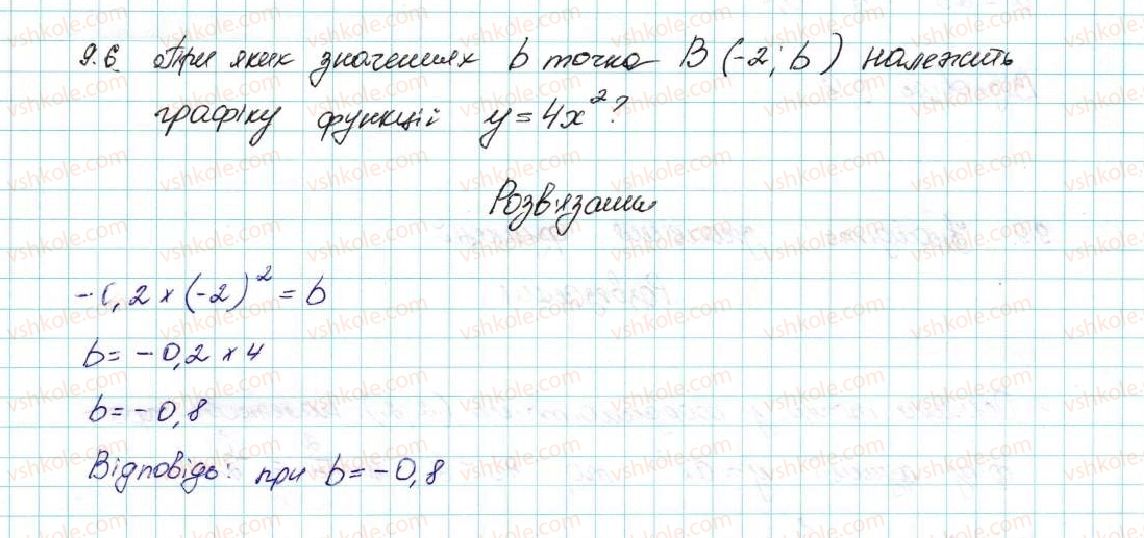 9.6. При яких значеннях b точка B (-2; b) належить
графіку функції y = 4x²?
Розв'язання
-0,2 × (-2)² = b
b = -0,2 × 4
b = -0,8
Відповідь: при b = -0,8